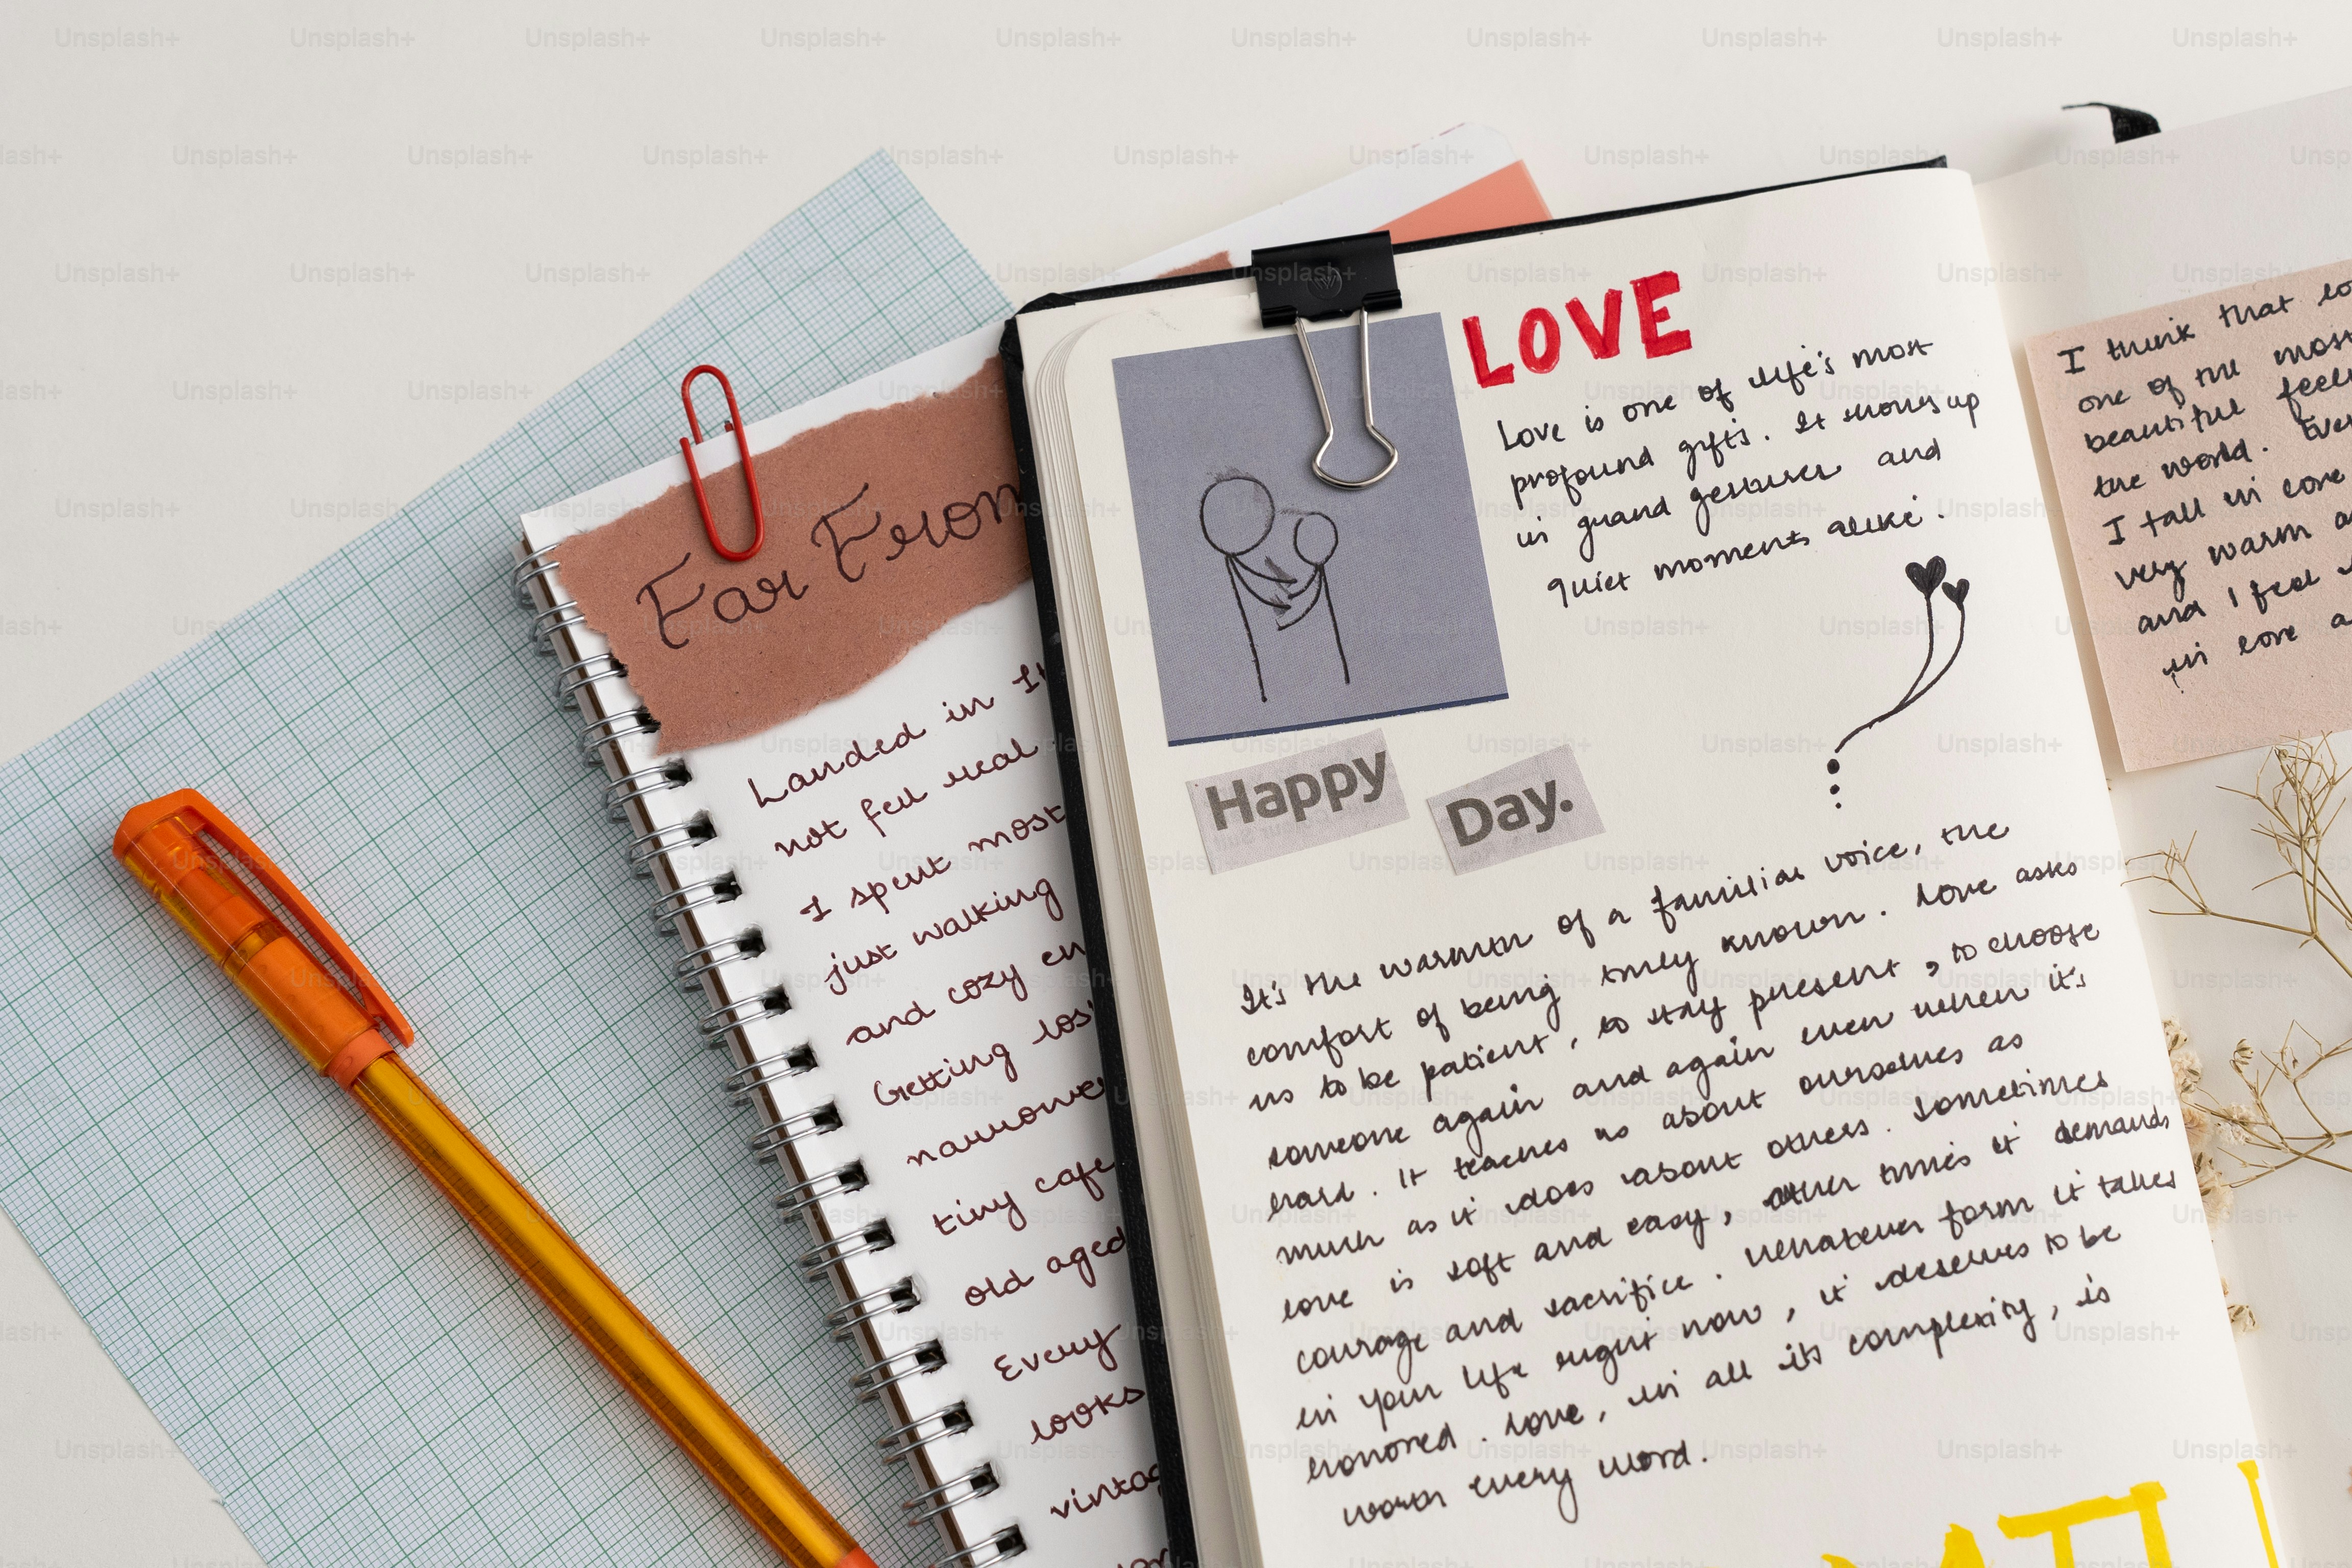 Far From
Landed in
not feel real
I spent most
just walking
and cozy
Getting
narrower
tiny cafe
old aged
Every
looks
LOVE
Love is one of life's most
profound gifts. It shows up
in grand gestures and
quiet moments alike.
Happy Day.
It's the warmth of a familiar voice, the
comfort of being truly known. Love asks
us to be patient, to stay present, to choose
someone again and again even when it's
hard. It teaches us about ourselves as
much as it does about others. Sometimes
love is soft and easy, other times it demands
courage and sacrifice. Whatever form it takes
in your life right now, it deserves to be
honored. Love, in all its complexity, is
worth every word.
I think that
one of the most
beautiful
the world.
I fall in love
very warm
and I feel
in love
Unsplash+